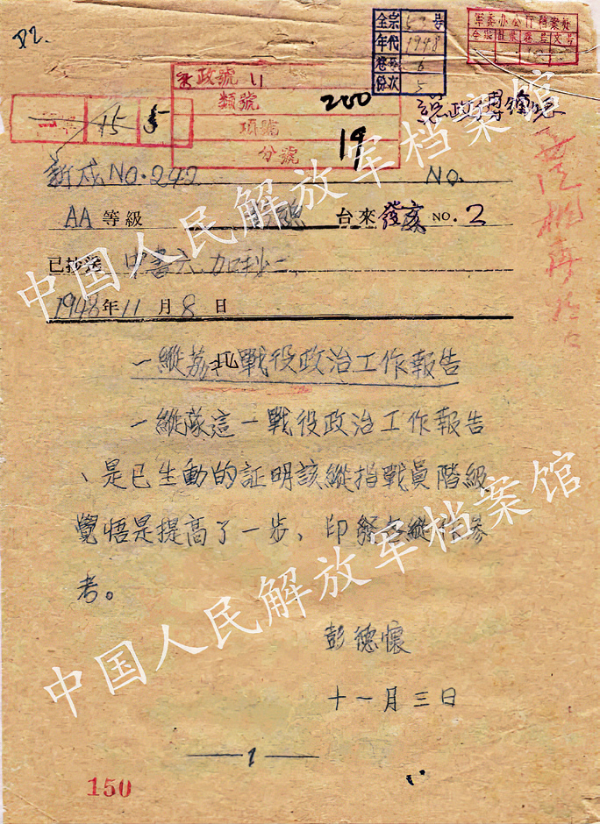 P2.
全宗 57 号
年代 1948
卷号 6
份次 5
军委办公厅档案处
政號 11
類號 200
項號
分號 19
15 5
新戍NO.242 NO.
AA 等級 台來 發 NO.2
已抄送
1948年11月8日
一縱荔北戰役政治工作報告
一縱隊這一戰役政治工作報告
、是已生動的証明該縱指戰員階級
覺悟是提高了一步、印發各縱作參
考。
彭德懷
十一月三日
—1—
150
中国人民解放军档案馆
中国人民解放军档案馆